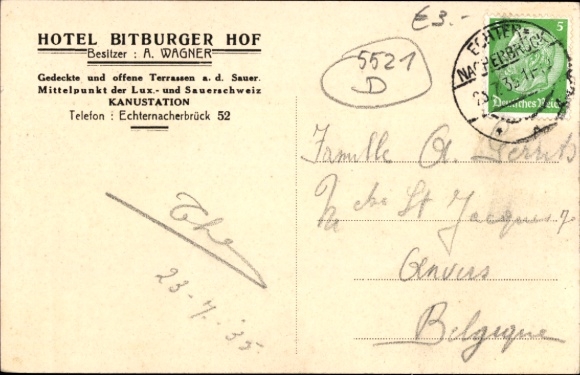 HOTEL BITBURGER HOF
Besitzer : A. WAGNER
Gedeckte und offene Terrassen a. d. Sauer.
Mittelpunkt der Lux.- und Sauerschweiz
KANUSTATION
Telefon : Echternacherbrück 52
€3.-
5521
D
5
Deutsches Reich
ECHTER
NACHERBRÜCK
Famille A. Gerrits
St Jacques
Anvers
Belgique
23-7-35